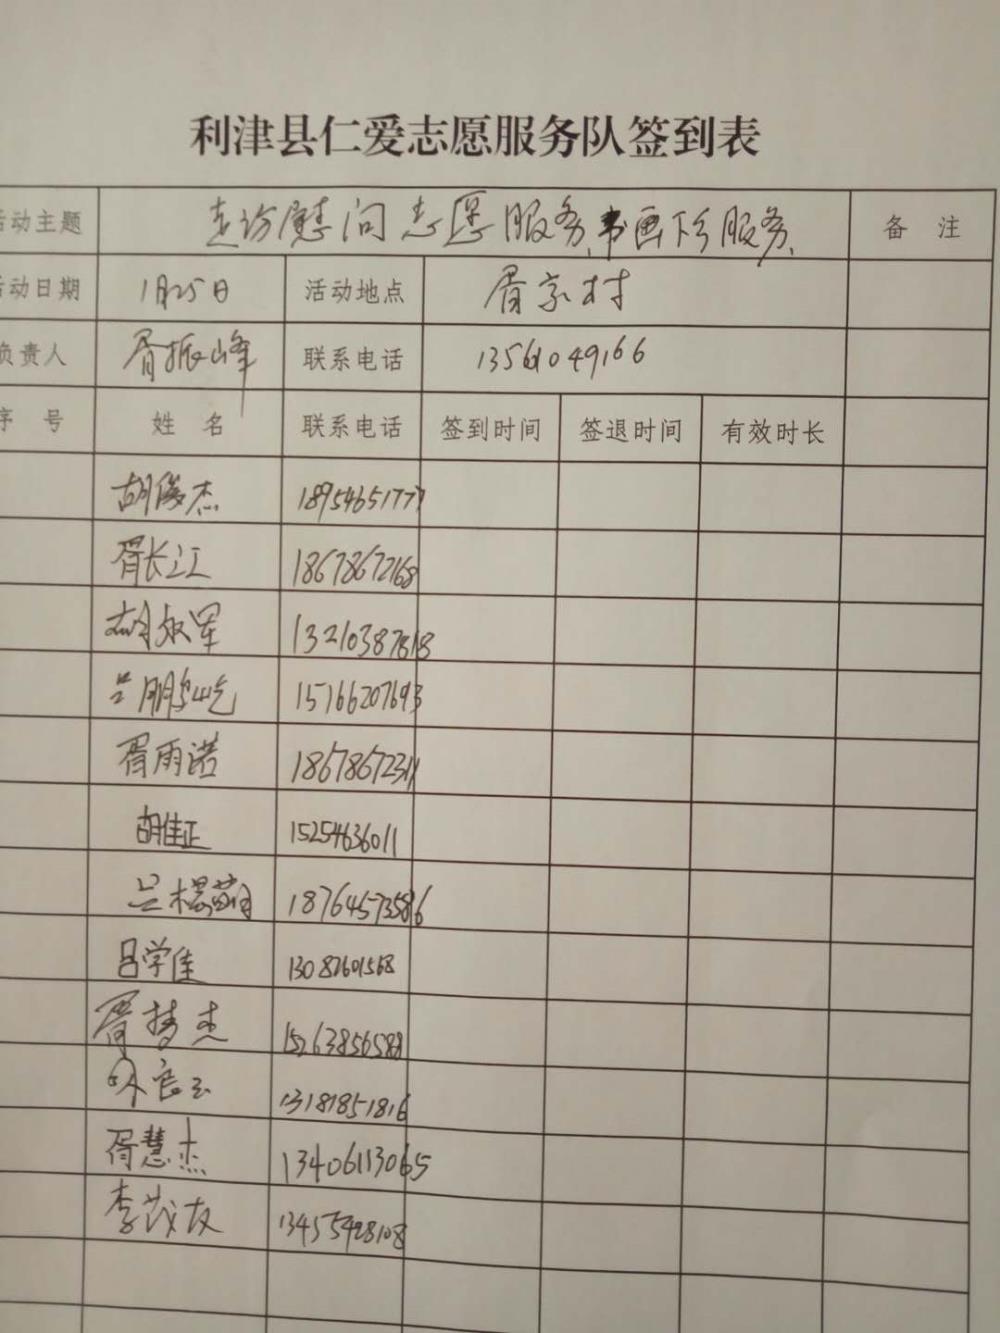 利津县仁爱志愿服务队签到表
活动主题 走访慰问志愿服务、书画下乡服务、 备 注
活动日期 1月25日 活动地点 胥家村
负责人 胥振峰 联系电话 13561049166
序 号 姓 名 联系电话 签到时间 签退时间 有效时长
胡俊杰 18954651777
胥长江 18678672168
13210387818
吕鹏屹 15166207693
胥雨诺 18678672311
胡佳正 15254636011
18764573586
吕学佳 13082601568
胥梦杰 15263856588
13181851816
胥慧杰 13406113065
李茂友 13455428108